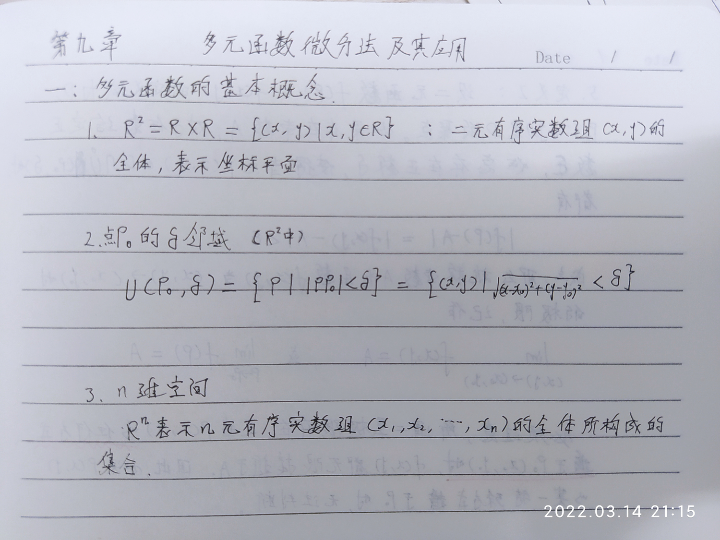 第九章 多元函数微分法及其应用
Date / /
一：多元函数的基本概念.
1. R² = R×R = {(x,y)|x,y∈R} : 二元有序实数组(x,y)的
全体，表示坐标平面
2.点P₀的δ邻域 (R²中)
U(P₀,δ) = {P| |PP₀|<δ} = {(x,y)|√(x-x₀)²+(y-y₀)² < δ}
3. n维空间
Rⁿ表示n元有序实数组(x₁,x₂,…,xₙ)的全体所构成的
集合.
2022.03.14 21:15